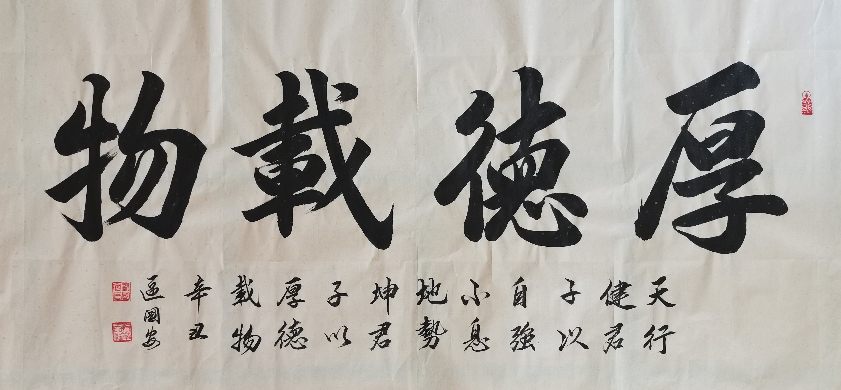 厚德載物
天行
健君
子以
自強
不息
地勢
坤君
子以
厚德
載物
辛丑
國安